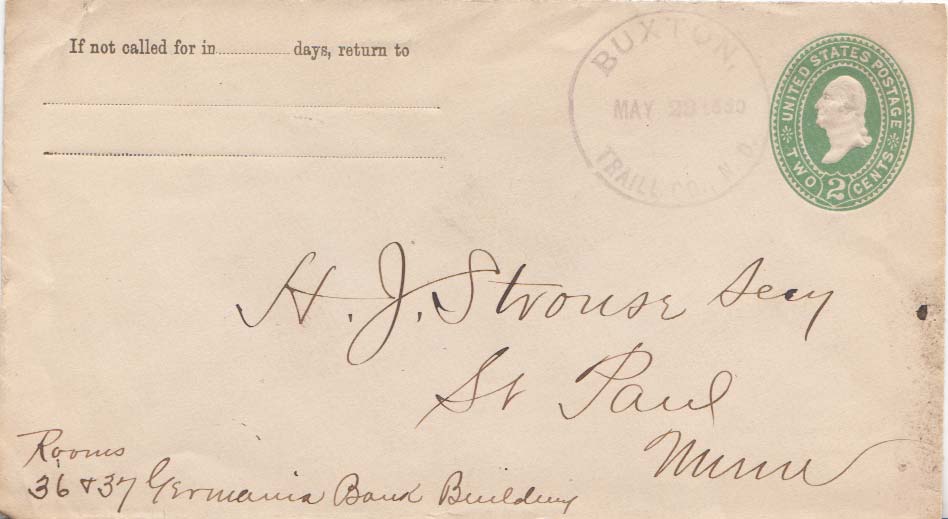 If not called for in............ days, return to
BUXTON,
MAY 29 1890
TRAILL CO., N. D.
UNITED STATES POSTAGE
TWO 2 CENTS
H. J. Strouse Secy
St Paul
Minn
Rooms
36 & 37 Germania Bank Building